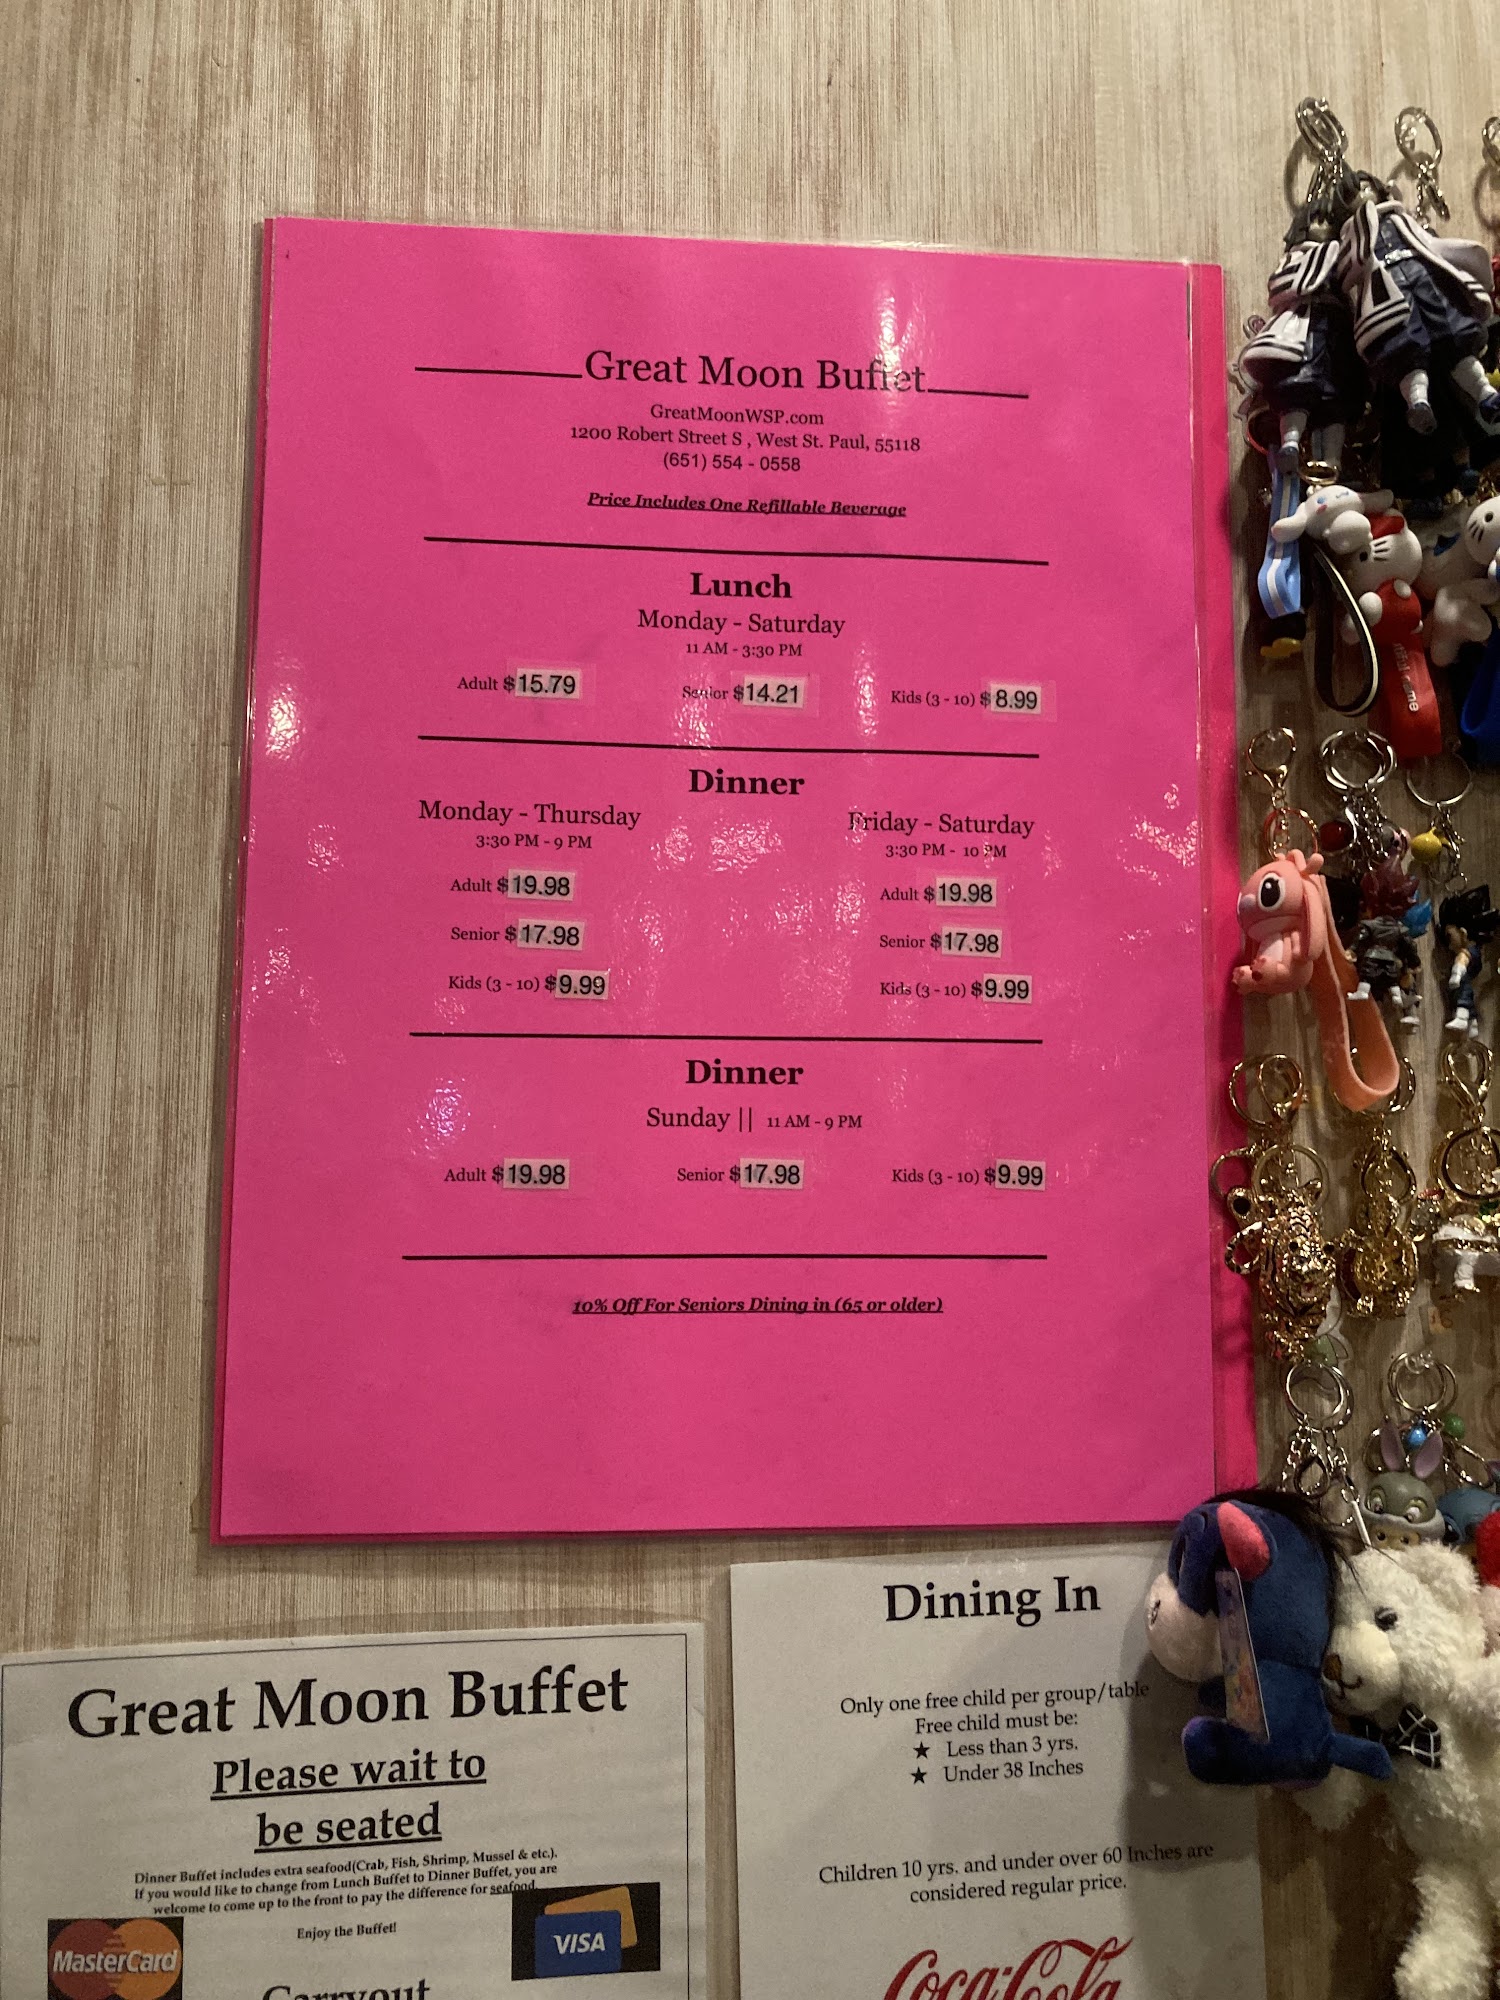 Great Moon Buffet
GreatMoonWSP.com
1200 Robert Street S , West St. Paul, 55118
(651) 554 - 0558
Price Includes One Refillable Beverage
Lunch
Monday - Saturday
11 AM - 3:30 PM
Adult $15.79 Senior $14.21 Kids (3 - 10) $8.99
Dinner
Monday - Thursday Friday - Saturday
3:30 PM - 9 PM 3:30 PM - 10 PM
Adult $19.98 Adult $19.98
Senior $17.98 Senior $17.98
Kids (3 - 10) $9.99 Kids (3 - 10) $9.99
Dinner
Sunday || 11 AM - 9 PM
Adult $19.98 Senior $17.98 Kids (3 - 10) $9.99
10% Off For Seniors Dining in (65 or older)
Great Moon Buffet
Please wait to
be seated
Dinner Buffet includes extra seafood(Crab, Fish, Shrimp, Mussel & etc.).
If you would like to change from Lunch Buffet to Dinner Buffet, you are
welcome to come up to the front to pay the difference for seafood.
Enjoy the Buffet!
MasterCard
VISA
Carryout
Dining In
Only one free child per group/table
Free child must be:
★ Less than 3 yrs.
★ Under 38 Inches
Children 10 yrs. and under over 60 Inches are
considered regular price.
Coca-Cola